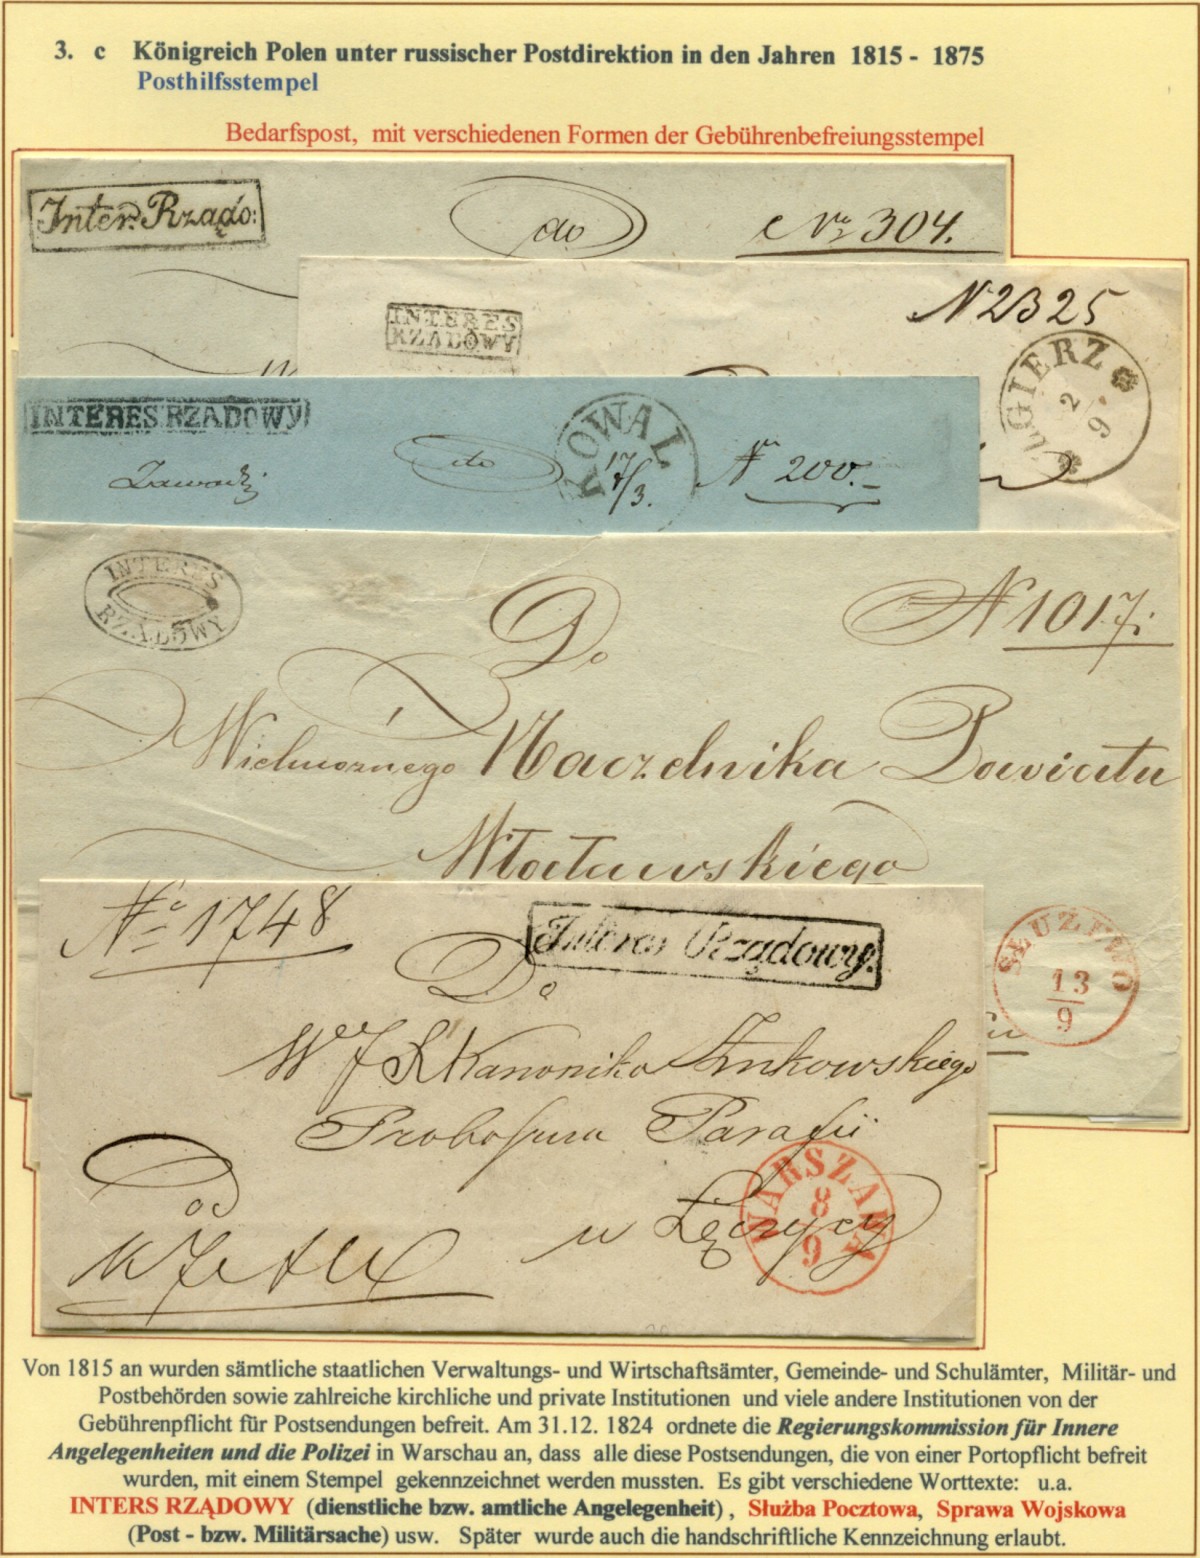 3. c Königreich Polen unter russischer Postdirektion in den Jahren 1815 - 1875
Posthilfsstempel
Bedarfspost, mit verschiedenen Formen der Gebührenbefreiungsstempel
Inter: Rządo:
do
No 304.
INTERES
RZADOWY
N 2325
ZGIERZ
2/9
INTERES RZADOWY
do
KOWAL
17/3.
No 200.-
INTERES
RZADOWY
Do
N 1017.
Wielmożnego Naczelnika Powiatu
Włocławskiego
No 1748
Interes Rządowy.
Do
SŁUZEWO
13/9
W J X Kanonika
Proboszcza Parafii
w Łęczycy
WARSZAWA
8/9
Od
Von 1815 an wurden sämtliche staatlichen Verwaltungs- und Wirtschaftsämter, Gemeinde- und Schulämter, Militär- und
Postbehörden sowie zahlreiche kirchliche und private Institutionen und viele andere Institutionen von der
Gebührenpflicht für Postsendungen befreit. Am 31.12. 1824 ordnete die Regierungskommission für Innere
Angelegenheiten und die Polizei in Warschau an, dass alle diese Postsendungen, die von einer Portopflicht befreit
wurden, mit einem Stempel gekennzeichnet werden mussten. Es gibt verschiedene Worttexte: u.a.
INTERS RZĄDOWY (dienstliche bzw. amtliche Angelegenheit) , Służba Pocztowa, Sprawa Wojskowa
(Post - bzw. Militärsache) usw. Später wurde auch die handschriftliche Kennzeichnung erlaubt.